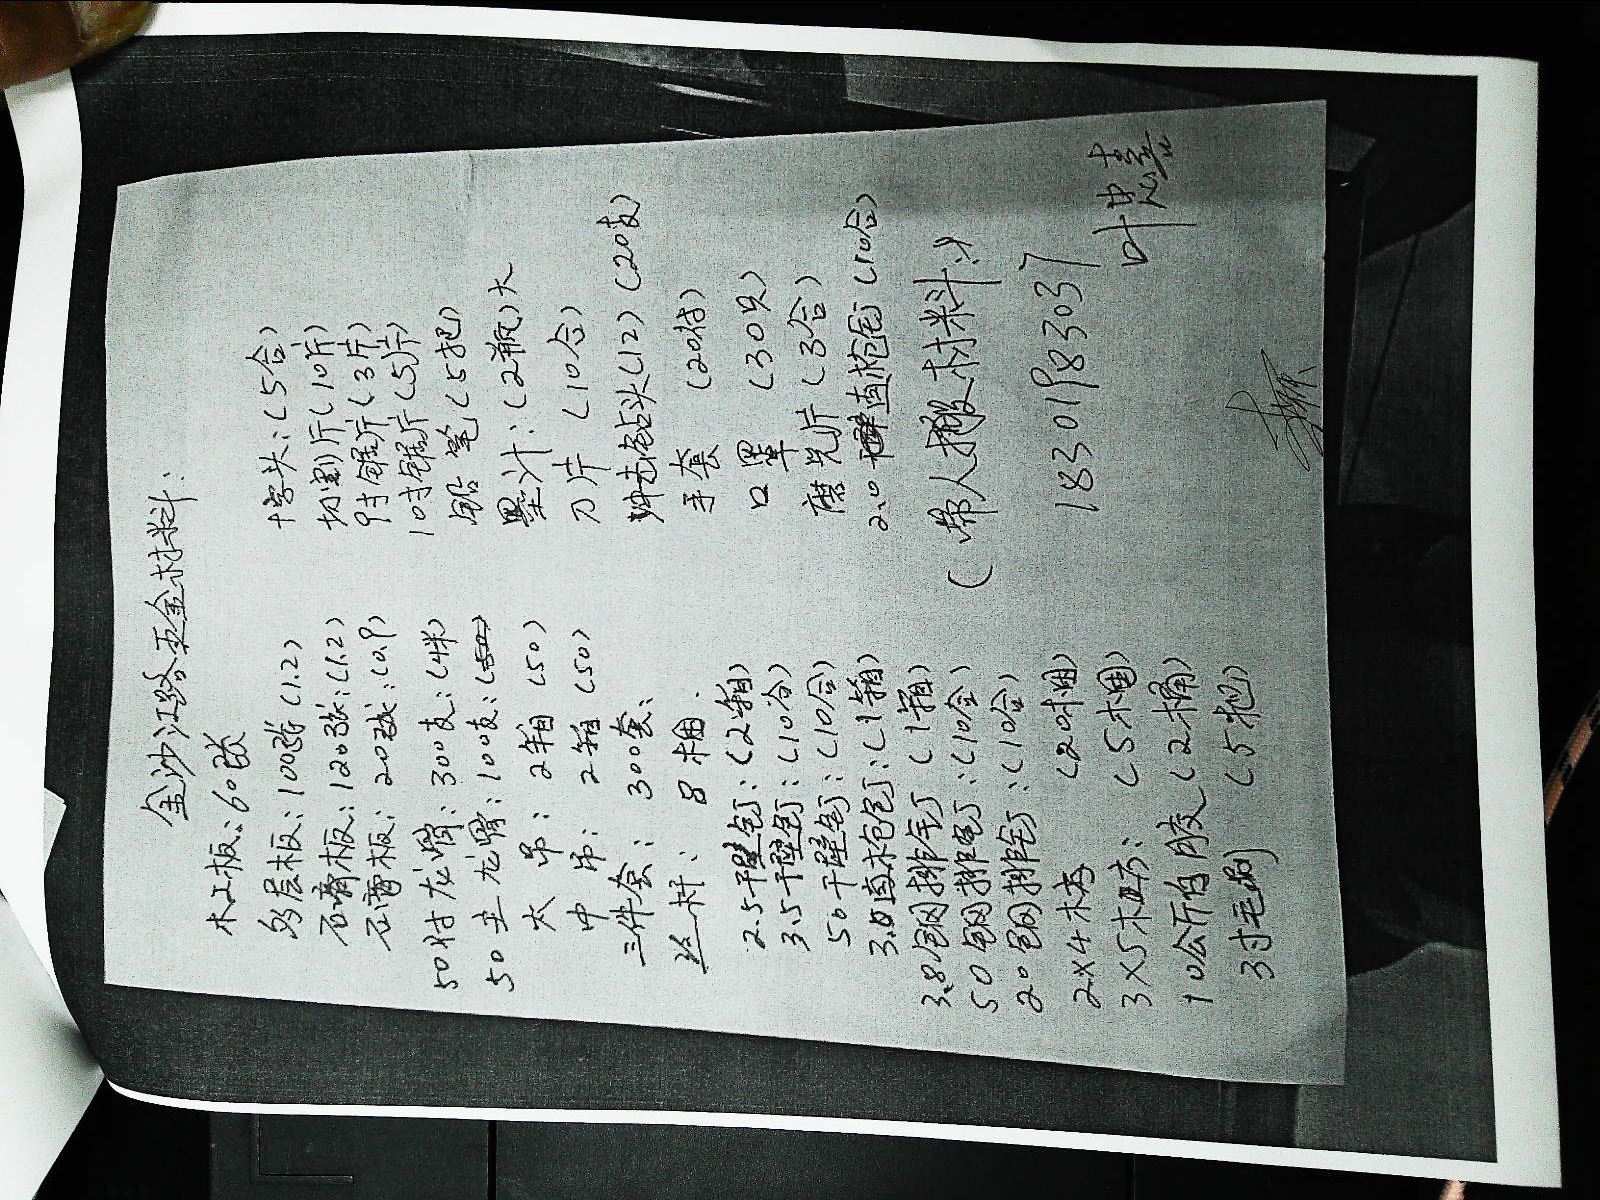 金沙江路五金材料:
木工板:60张
多层板:100张(1.2)
石膏板:120张:(1.2)
石膏板:20张:(0.9)
50付龙骨:300支:(4米)
50主龙骨:100支:
大吊:2箱(50)
中吊:2箱(50)
三件套:300套:
丝杆:8捆.
2.5干壁钉:(2箱)
3.5干壁钉:(10合)
50干壁钉:(10合)
3.0自木枪钉:(1箱)
3.8钢排钉(1箱)
50钢排钉:(10合)
20钢排钉:(10合)
2×4木方(20捆)
3×5木方:(5捆)
10公斤白胶(2桶)
3寸毛刷(5把)
十字头:(5合)
切割片(10片)
9寸锯片(3片)
10寸锯片(5片)
铅笔(5把)
墨汁:(2瓶)大
刀片(10合)
冲击钻头(12)(20支)
手套(20付)
口罩(30只)
磨光片(3合)
2.0直枪钉(10合)
(带人搬材料:)
18301983037
叶忠